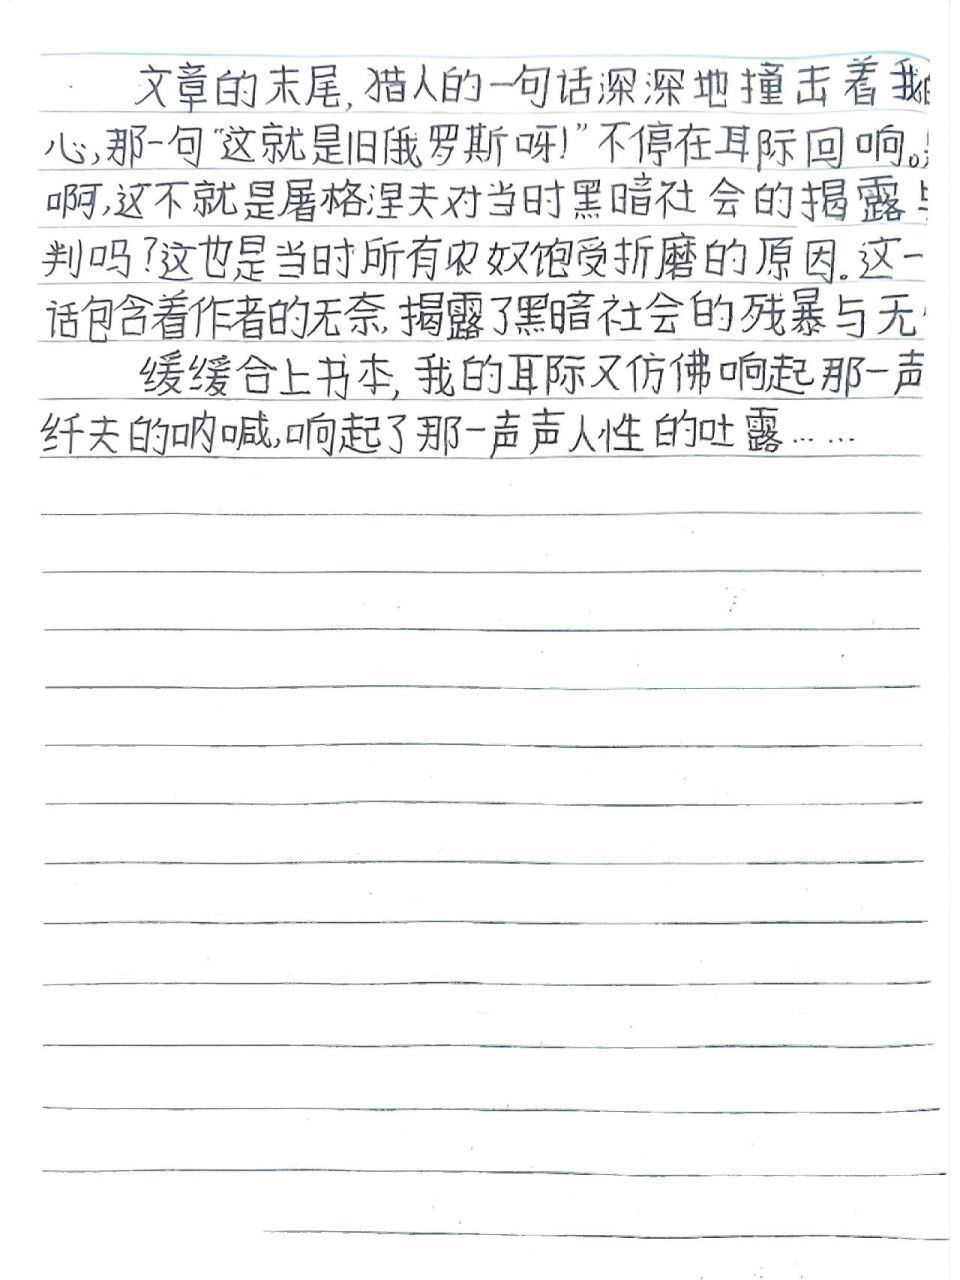 文章的末尾,猎人的一句话深深地撞击着我
心,那一句“这就是旧俄罗斯呀!”不停在耳际回响。
啊,这不就是屠格涅夫对当时黑暗社会的揭露
判吗?这也是当时所有农奴饱受折磨的原因。这一
话包含着作者的无奈,揭露了黑暗社会的残暴与无
缓缓合上书本,我的耳际又仿佛响起那一声
纤夫的呐喊,响起了那一声声人性的吐露……